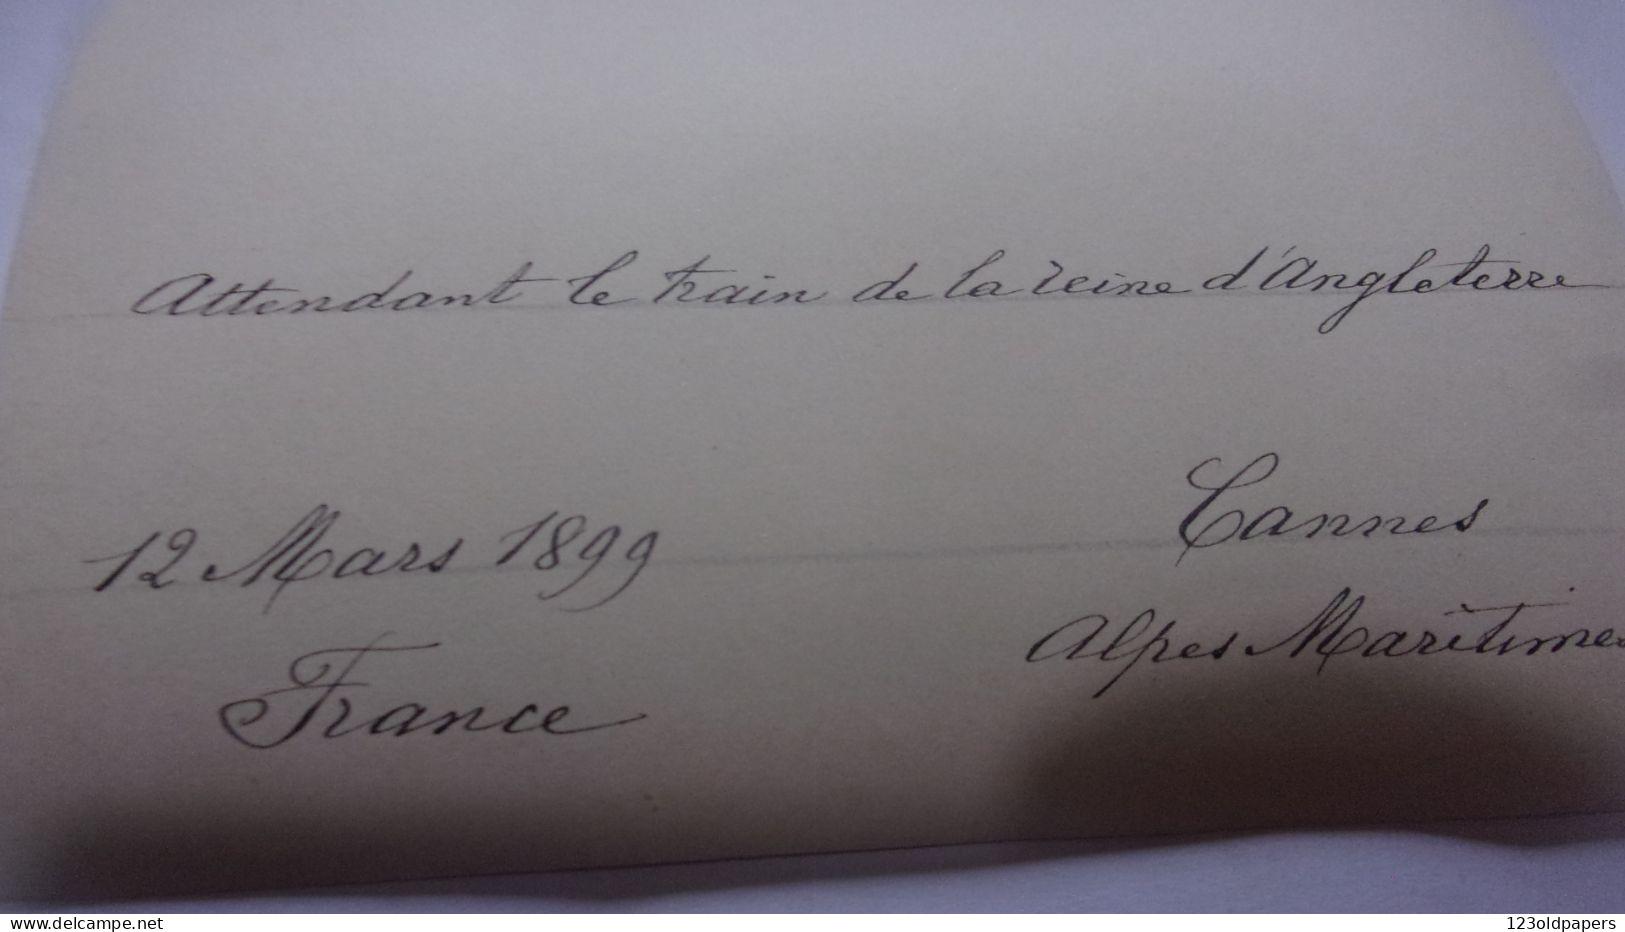 Attendant le train de la reine d'Angleterre
12 Mars 1899
Cannes
France
Alpes Maritimes
delcampe.net
123oldpapers